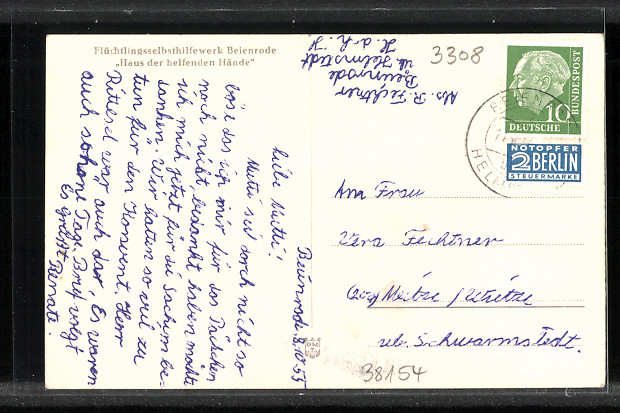 Flüchtlingsselbsthilfewerk Beienrode
„Haus der helfenden Hände"
Abs. R. Fechtner
Beienrode
üb. Helmstedt
3308
10
DEUTSCHE
BUNDESPOST
NOTOPFER
2 BERLIN
STEUERMARKE
BEIENRODE
HELM
Beienrode
55
Liebe Mutti!
Mutti sei doch nicht so
böse das ich mir für das Päckchen
noch nicht bedankt haben möchte
ich mich jetzt für die Sachen be-
danken. Wir hatten so viel zu
tun für den Konvent. Herr
war auch da. Es waren
auch schöne Tage. Brief folgt
Es grüßt
Renate.
An Frau
Vera Fechtner
Meitze
üb. Schwarmstedt.
38154